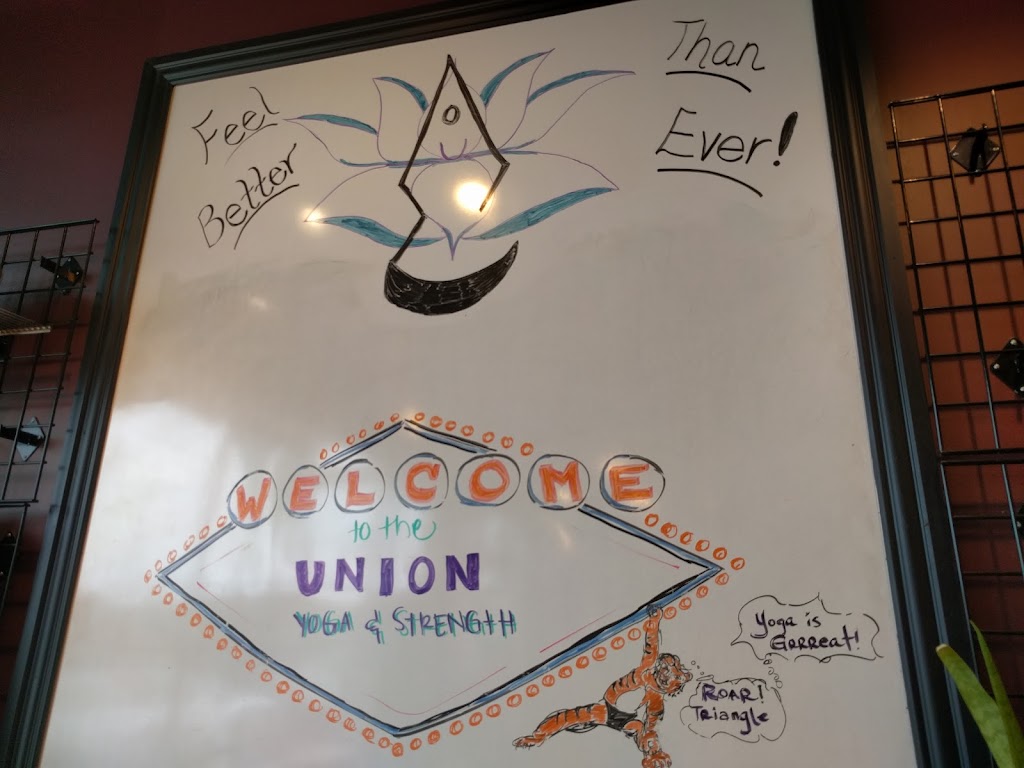 Feel
Better
Than
Ever!
WELCOME
to the
UNION
YOGA & STRENGTH
Yoga is
Grrreat!
ROAR!
Triangle